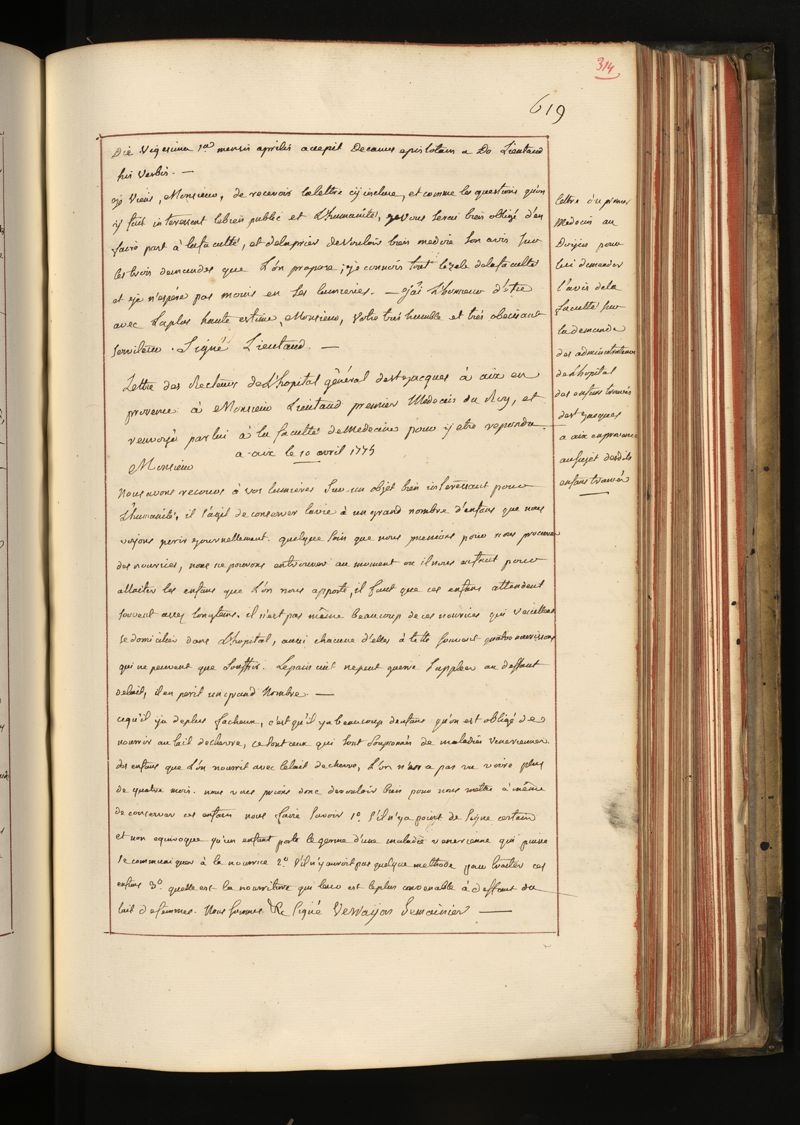 314
619
Die Vigesima 1ª mensis aprilis accepit Decanus epistolam a Do Lieutaud
his verbis. —
Je viens, Monsieur, de recevoir la lettre cy incluse, et comme les questions qu'on
y fait interessent le bien public et L'humanité, je vous serai bien obligé d'en
faire part à la faculté, et de la prier de vouloir bien me dire son avis sur
les trois demandes que L'on propose; je connois tout le zele de la faculté
et je n'espére pas moins en ses lumieres. — J'ai L'honneur d'etre
avec La plus haute estime, Monsieur, Votre très humble et très obeissant
serviteur. Signé Lieutaud. —
Lettre des Recteurs de L'hopital général de St jacques à aix en
provence à Monsieur Lieutaud premier Medecin du Roy, et
renvoyé par lui à la faculté de Medecine pour y etre repondu.
a aix le 10 avril 1775
Monsieur
Nous avons recours à vos lumières sur un objet bien interessant pour
L'humanité, il s'agit de conserver la vie à un grand nombre d'enfans que nous
voyons perir journellement. quelque soin que nous prenions pour nous procurer
des nourrices, nous ne pouvons en trouver au moment ou il nous en faut pour
allaiter les enfans que L'on nous apporte, il faut que ces enfans attendent
souvent assez longtems. il n'est pas même beaucoup de ces nourrices qui veuillent
se domicilier dans L'hopital, aussi chacune d'elles à t'elle souvent quatre nourrissons
qui ne peuvent que souffrir. Le pain cuit ne peut guere suppleer au deffaut
de lait, il en perit un grand nombre. —
ce qu'il y a de plus facheux, c'est qu'il y a beaucoup d'enfans qu'on est obligé de
nourrir au lait de chevre, ce sont ceux qui sont soupçonnés de maladies veneriennes.
des enfans que L'on nourrit avec le lait de chevre, L'on n'en a pas vu vivre plus
de quatre mois. nous vous prions donc de vouloir bien pour nous mettre à même
de conserver ces enfans nous faire savoir 1º. s'il n'y a point de signe certain
et non equivoque qu'un enfant porte le germe d'une maladie venerienne qui puisse
se communiquer à la nourrice 2º. s'il n'y auroit pas quelque methode pour traiter ces
enfans 3º. quelle est la nourriture qui leur est le plus convenable à deffaut du
lait de femmes. Nous sommes &c signé Semainier —
lettre du premier
Medecin au
Doyen pour
lui demander
l'avis de la
faculté sur
la demande
des administrateurs
de L'hopital
des enfans trouvés
de St jacques
a aix en provence
au sujet desdits
enfans trouvés